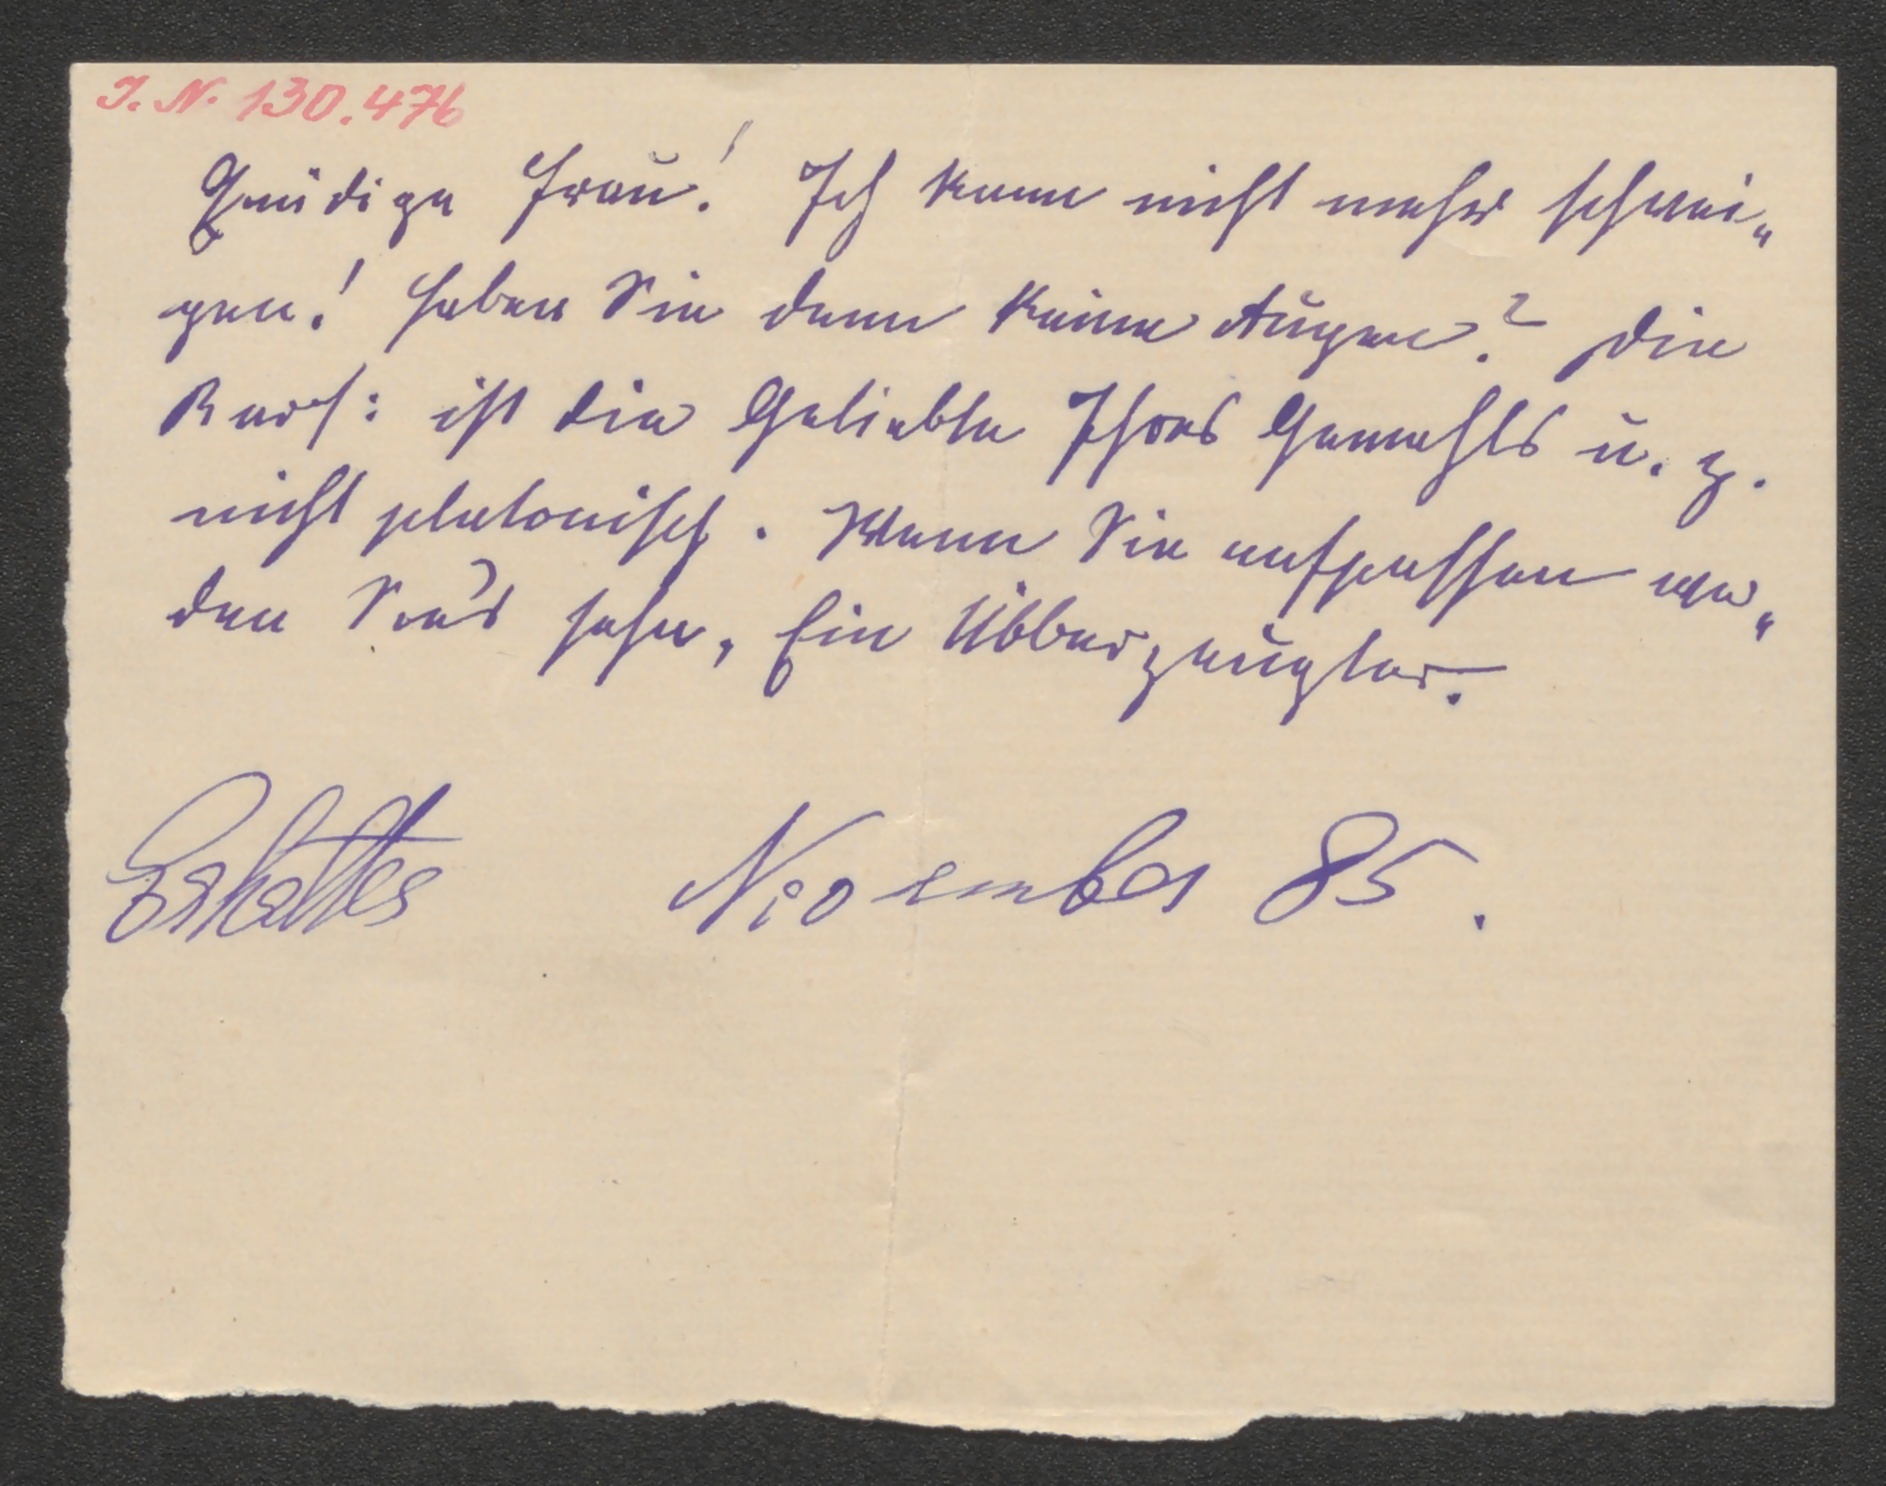 I. N. 130.476
Gnädige Frau! Ich kann nicht mehr schwei„
gen! Haben Sie denn keine Augen? Die
ist die Geliebte Ihres Gemahls u. z.
nicht platonisch. Wenn Sie aufpassen wer„
den Sie's sehn, Ein Übberzeugter.
Erhalten November 85.